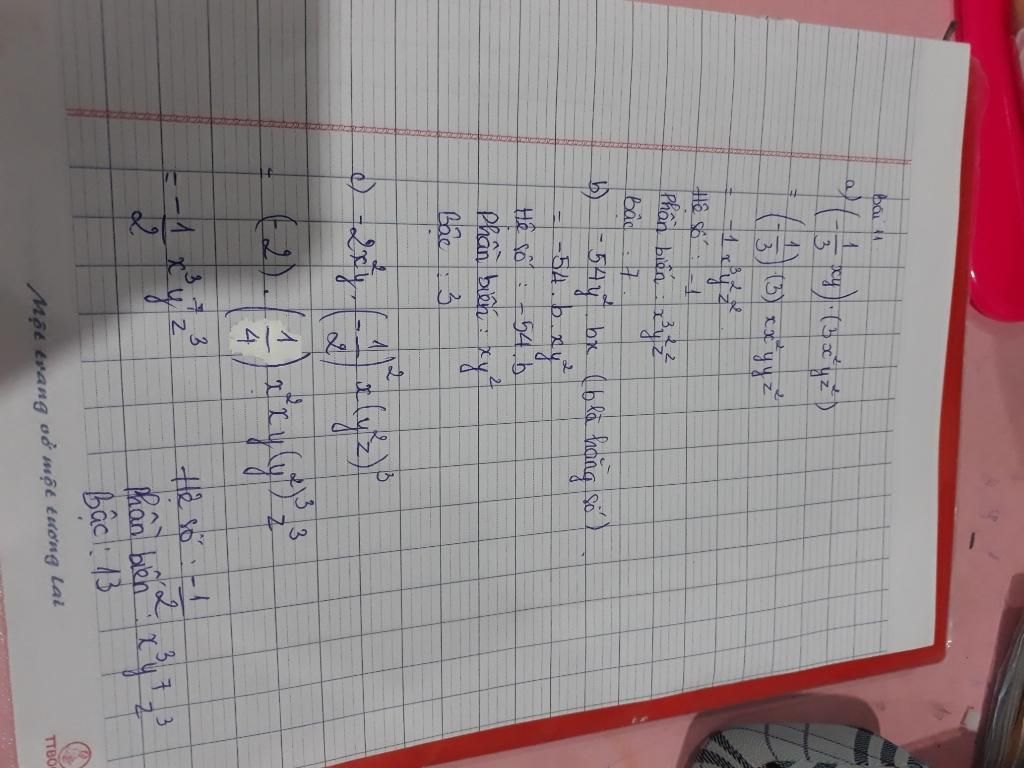 Bài 11
a) (-1/3 xy) . (3x²yz²)
= (-1/3).(3) xx²yyz²
= -1x³y²z².
Hệ số : -1
Phần biến : x³y²z²
Bậc : 7.
b) -54y². bx (b là hằng số).
= -54.b.xy²
Hệ số : -54.b
Phần biến : xy²
Bậc : 3
c) -2x²y. (-1/2)² x(y²z)³
= (-2). (1/4). x²xy(y²)³z³
= -1/2 x³y⁷z³
Hệ số : -1/2
Phần biến : x³y⁷z³
Bậc : 13
Một trang vở một tương lai
TTBO